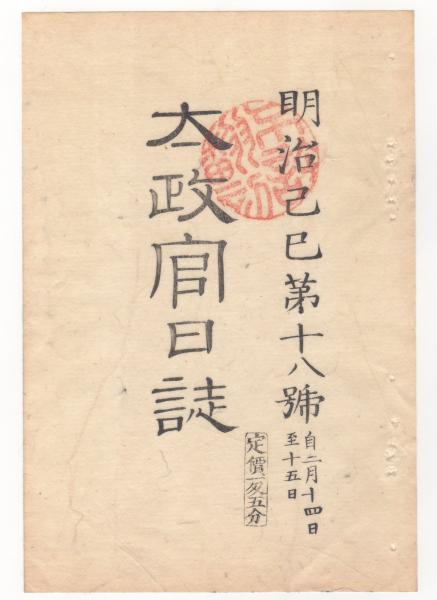 明治己巳第十八號
自二月十四日
至十五日
太政官日誌
定價一匁五分